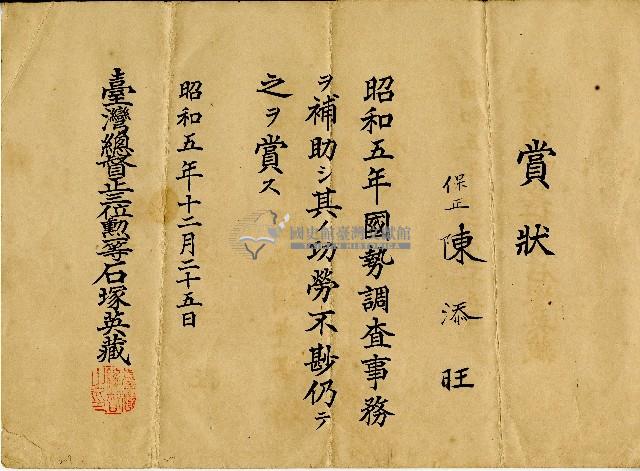 賞狀
保正 陳添旺
昭和五年國勢調査事務
ヲ補助シ其ノ功勞不尠仍テ
之ヲ賞ス
昭和五年十二月二十五日
臺灣總督正三位勳一等石塚英藏
國史館臺灣文獻館
TAIWAN HISTORICA